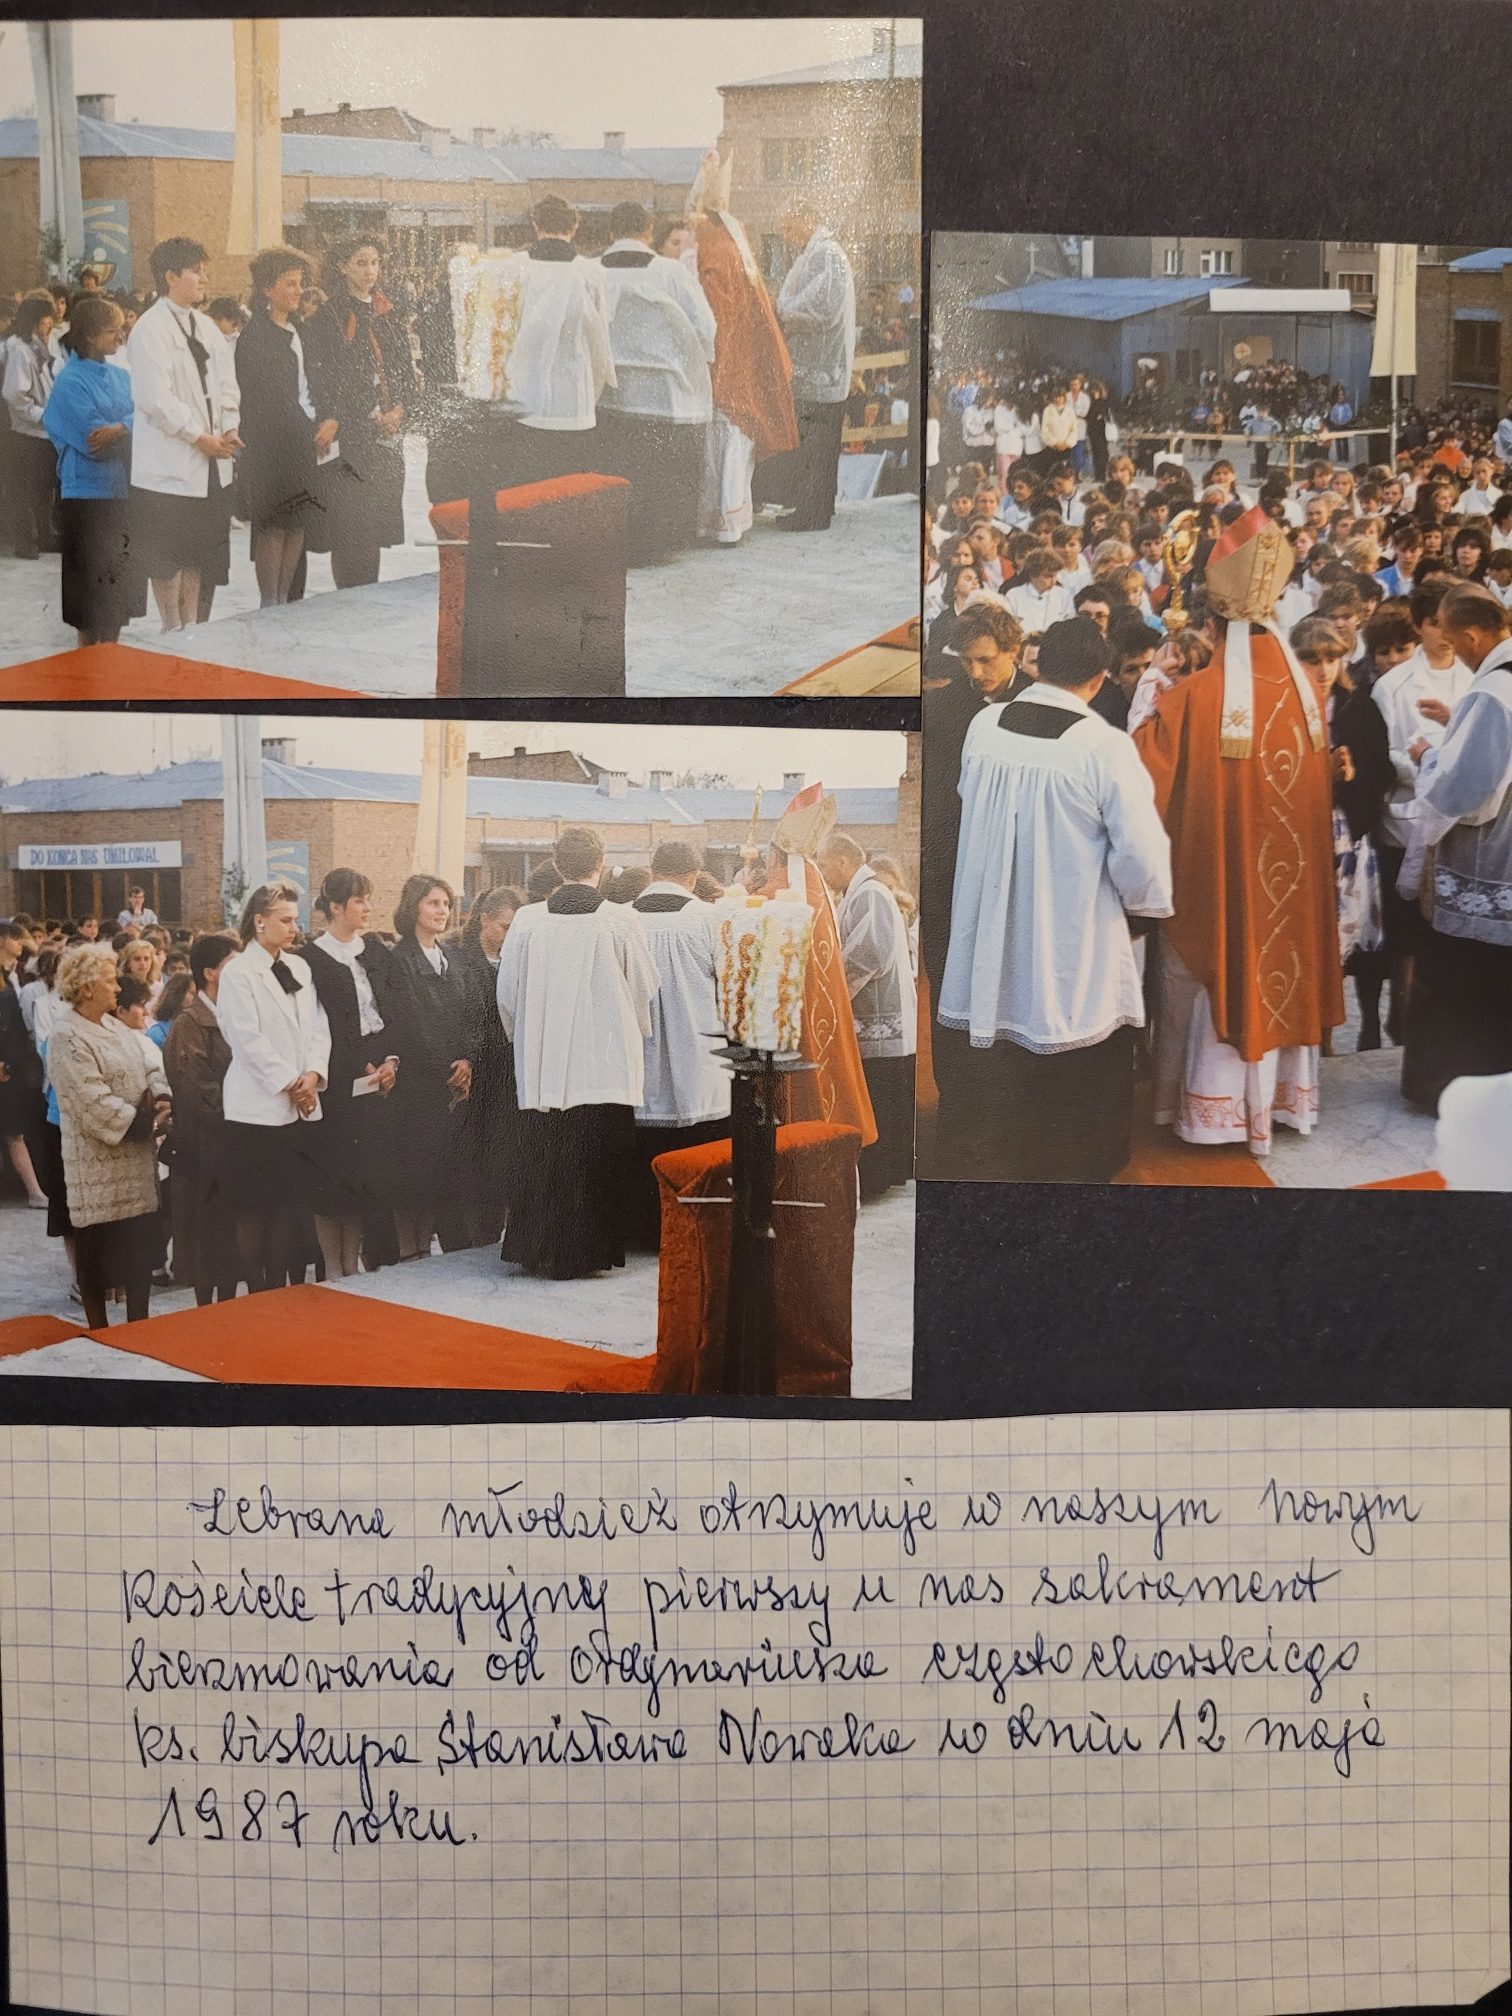 DO KOŃCA NAS UMIŁOWAŁ
Zebrana młodzież otrzymuje w naszym nowym
Kościele tradycyjny pierwszy u nas sakrament
bierzmowania od Ordynariusza częstochowskiego
ks. biskupa Stanisława Nowaka w dniu 12 maja
1987 roku.